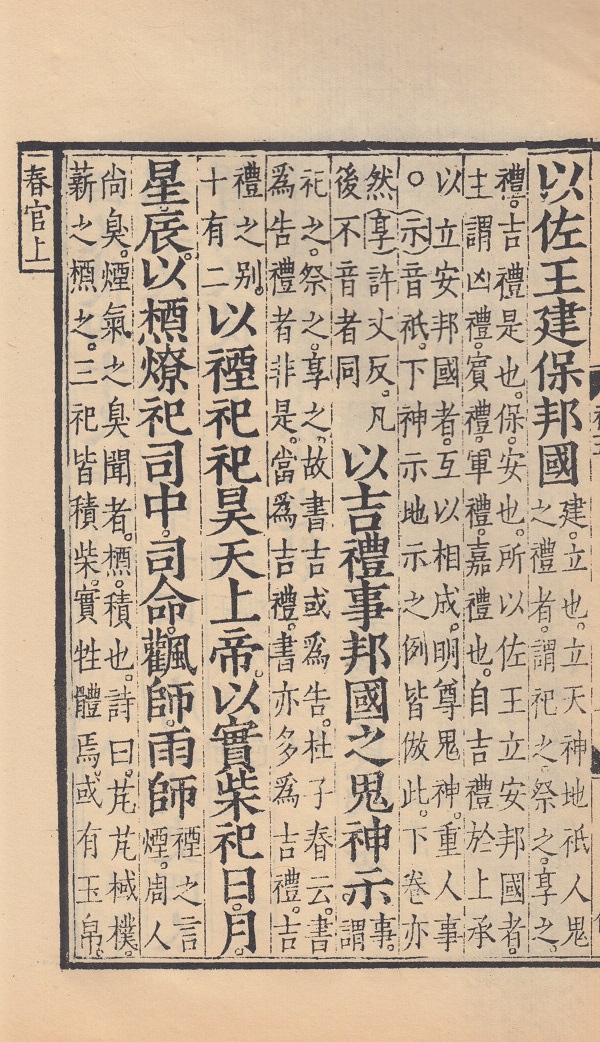 以佐王建保邦國
建。立也。立天神地祇人鬼
之禮者。謂祀之。祭之。享之。
禮。吉禮是也。保。安也。所以佐王立安邦國者。
主謂凶禮。賓禮。軍禮。嘉禮也。自吉禮於上承
以立安邦國者。互以相成。明尊鬼神。重人事
○(示)音祇。下神示地示之例皆倣此。下卷亦
然(享)許丈反。凡
後不音者同
以吉禮事邦國之鬼神示
事。
謂
祀之。祭之。享之。故書吉或為告。杜子春云。書
為告禮者非是。當為吉禮。書亦多為吉禮。吉
禮之別。
十有二
以禋祀祀昊天上帝。以實柴祀日。月。
星。辰。以槱燎祀司中。司命。飌師。雨師
禋之言
煙。周人
尚臭。煙氣之臭聞者。槱。積也。詩曰。芃芃棫樸。
薪之槱之。三祀皆積柴。實牲體焉。或有玉帛。
春官上